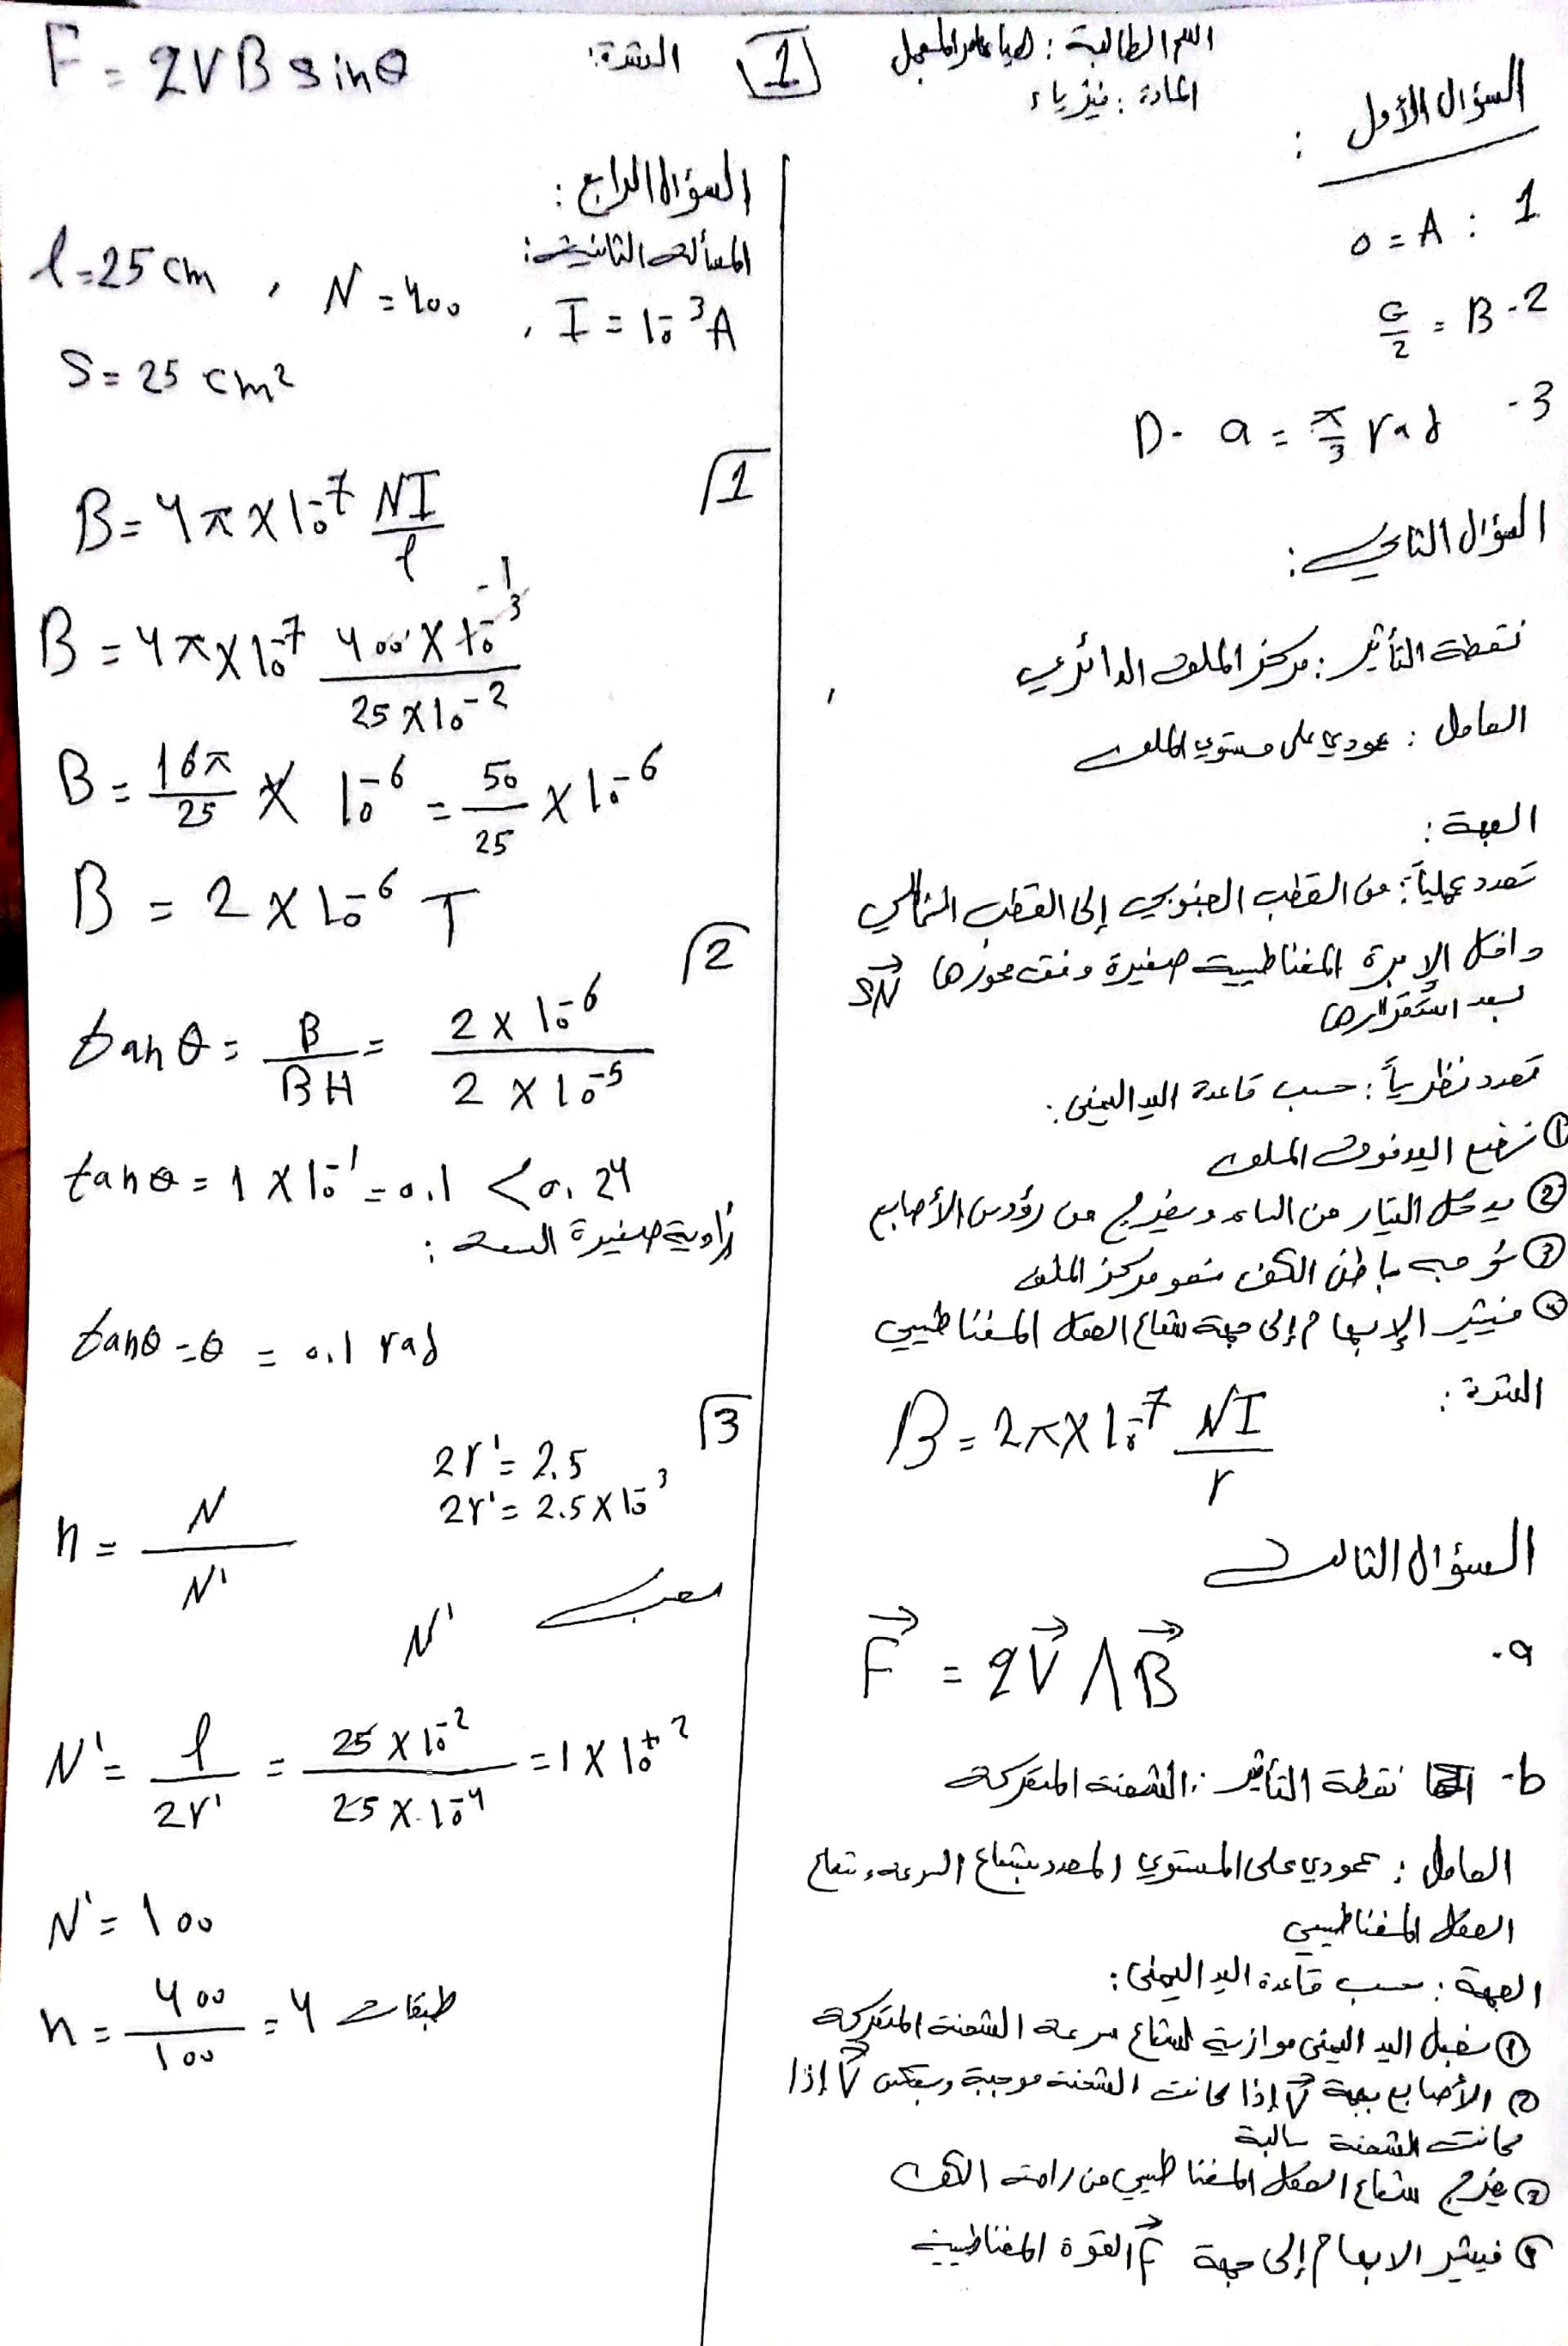 اسم الطالبة :
المادة : فيزياء
1
السؤال الأول :
1 : A = 0
2 - B = G/2
3 - D - a = π/3 rad
السؤال الثاني :
نقطة التأثير : مركز الملف الدائري
الحامل : عمودي على مستوي الملف
الجهة :
تحدد عملياً : من القطب الجنوبي إلى القطب الشمالي
داخل الإبرة المغناطيسية صغيرة وفق محورها SN
بعد استقرارها
تحدد نظرياً : حسب قاعدة اليد اليمنى :
① نضع اليد فوق الملف
② يدخل التيار من الساعد ويخرج من رؤوس الأصابع
③ نوجه باطن الكف نحو مركز الملف
④ فيشير الإبهام إلى جهة شعاع الحقل المغناطيسي
الشدة :
B = 2π × 10⁻⁷ NI/r
السؤال الثالث
a - F⃗ = qV⃗ Λ B⃗
b - نقطة التأثير : الشحنة المتحركة
الحامل : عمودي على المستوي المحدد بشعاع السرعة وشعاع
الحقل المغناطيسي
الجهة : حسب قاعدة اليد اليمنى :
① نجعل اليد اليمنى موازية لشعاع سرعة الشحنة المتحركة
② الأصابع بجهة V⃗ إذا كانت الشحنة موجبة وبعكس V⃗ إذا
كانت الشحنة سالبة
③ يخرج شعاع الحقل المغناطيسي من راحة الكف
④ فيشير الابهام إلى جهة F⃗ القوة المغناطيسية
الشدة :
F = qVB sinθ
السؤال الرابع :
المسألة الثانية :
l = 25 cm , N = 400 , I = 10⁻³ A
S = 25 cm²
1
B = 4π × 10⁻⁷ NI/l
B = 4π × 10⁻⁷ 400 × 10⁻³/25 × 10⁻² -1
B = 16π/25 × 10⁻⁶ = 50/25 × 10⁻⁶
B = 2 × 10⁻⁶ T
2
tan θ = B/BH = 2 × 10⁻⁶/2 × 10⁻⁵
tan θ = 1 × 10⁻¹ = 0.1 < 0.24
زاوية صغيرة السعة :
tanθ = θ = 0.1 rad
3
2r' = 2.5
2r' = 2.5 × 10⁻³
n = N/N'
نحسب N'
N' = l/2r' = 25 × 10⁻²/25 × 10⁻⁴ = 1 × 10⁺²
N' = 100
n = 400/100 = 4 طبقات